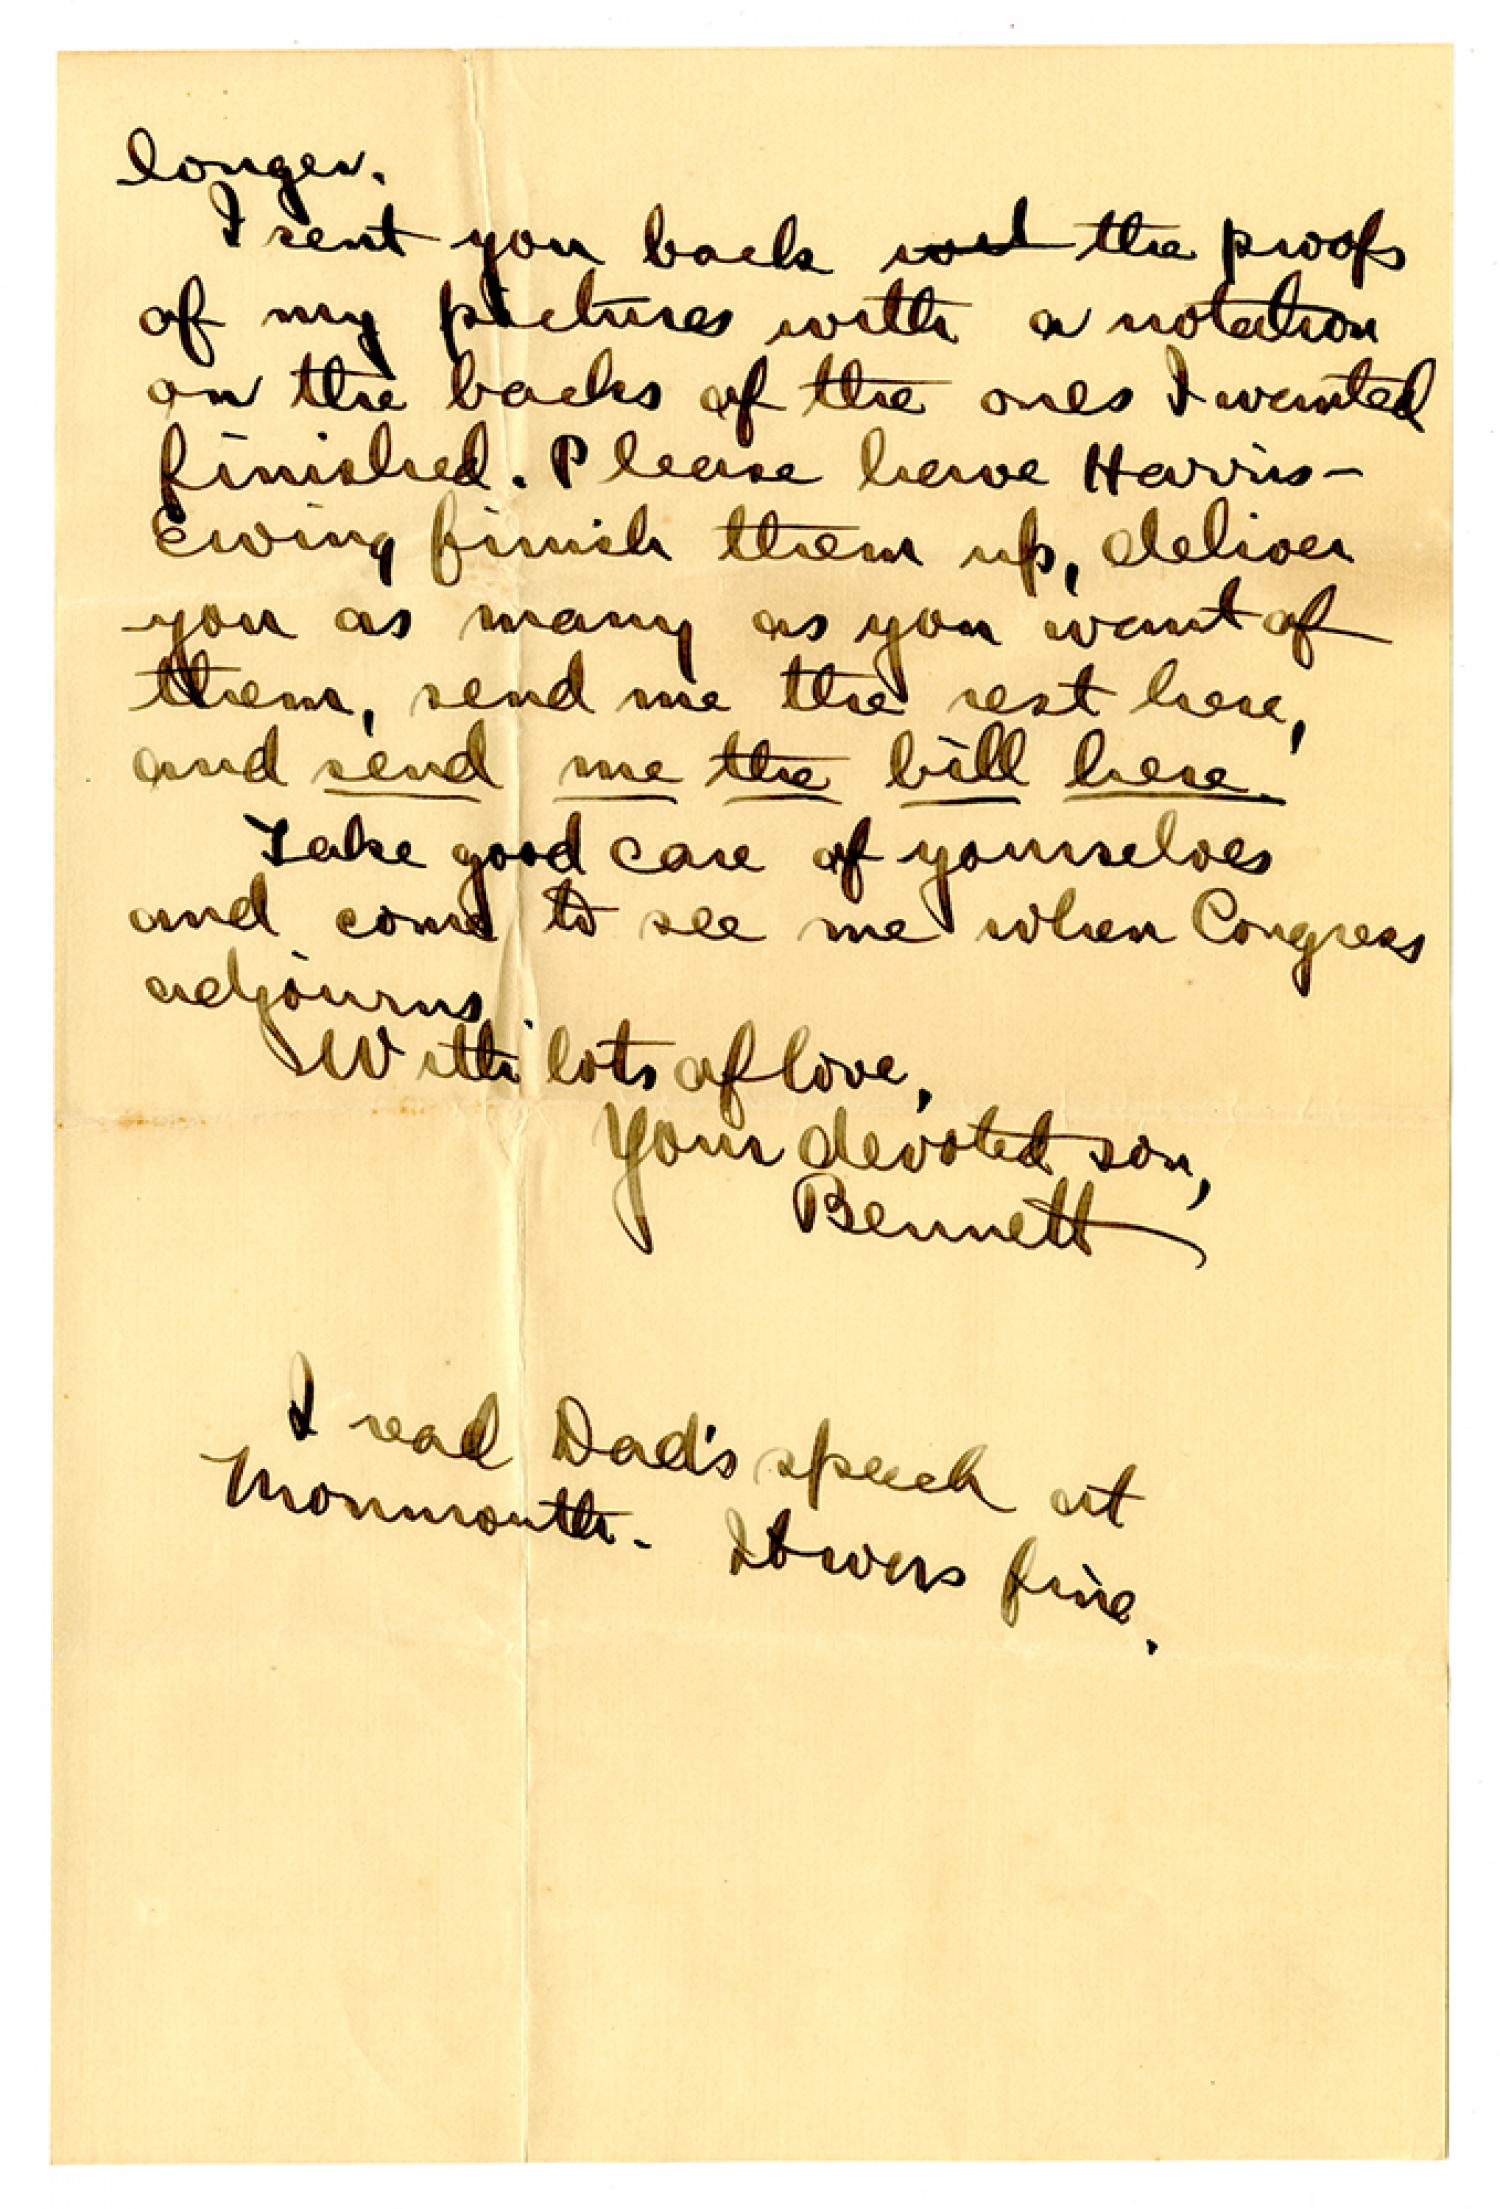 longer.
I sent you back the proofs
of my pictures with a notation
on the backs of the ones I wanted
finished. Please have Harris-
Ewing finish them up, deliver
you as many as you want of
them, send me the rest here,
and send me the bill here.
Take good care of yourselves
and come to see me when Congress
adjourns.
With lots of love,
Your devoted son,
Bennett
I read Dad's speech at
Monmouth. It was fine.